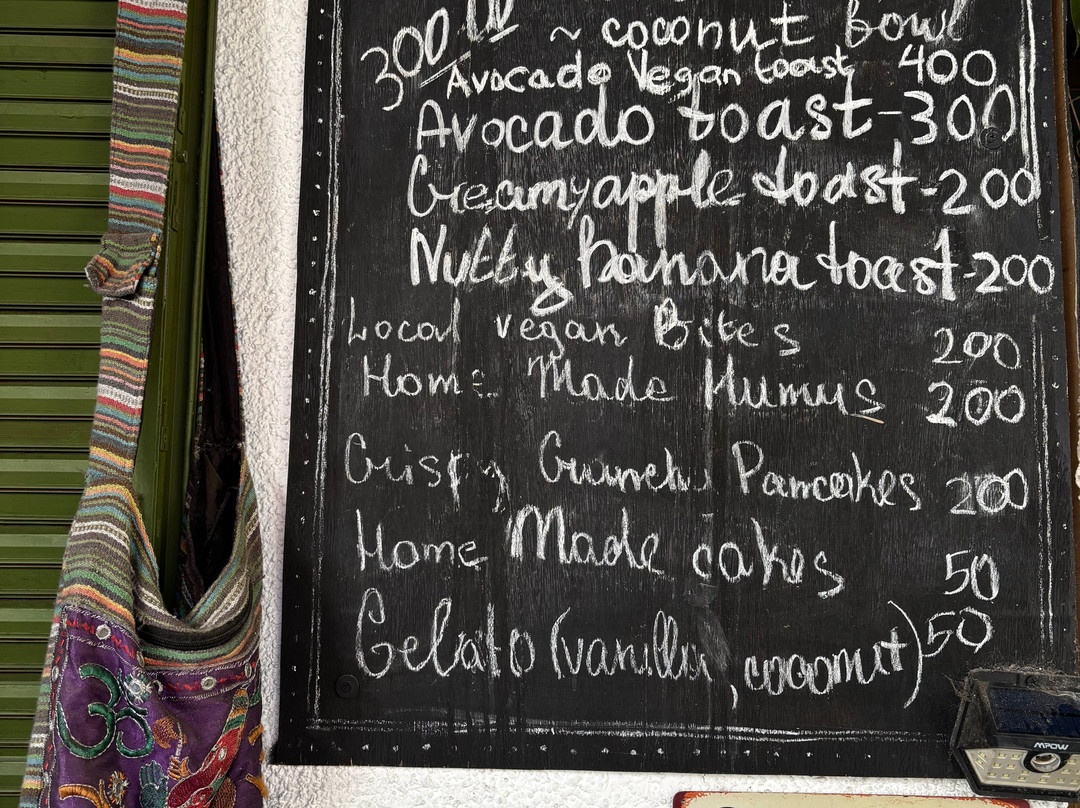 300 ~ coconut bowl
Avocado Vegan toast 400
Avocado toast-300
Creamy apple toast-200
Nutty banana toast-200
Local vegan Bites 200
Home Made Humus 200
Crispy Crunchy Pancakes 200
Home Made cakes 50
Gelato (vanilla, coconut) 50
ॐ
MPOW